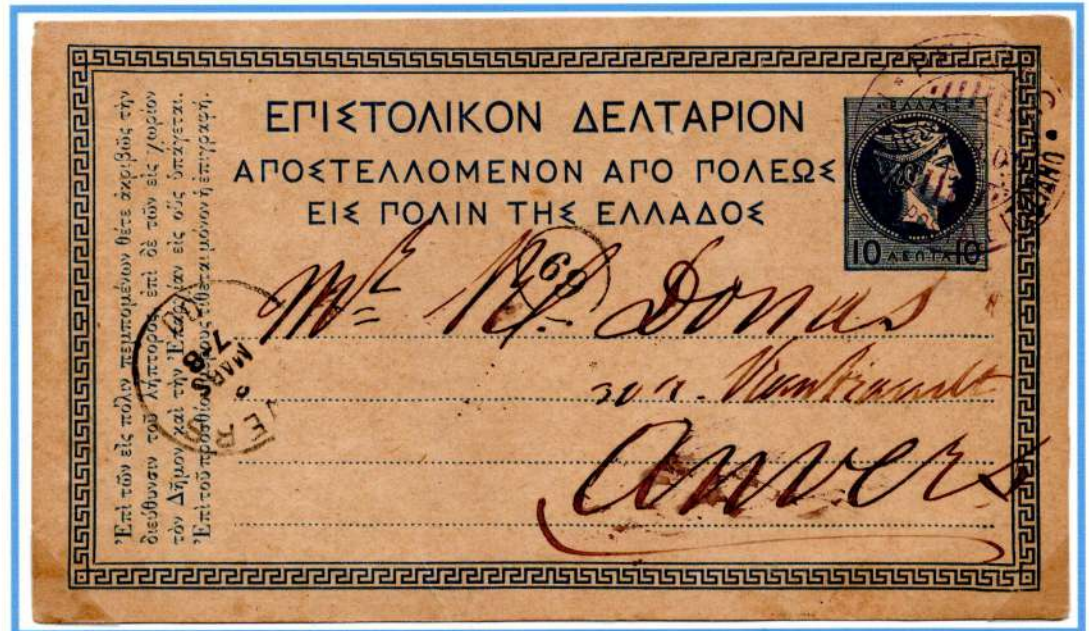 ΕΠΙΣΤΟΛΙΚΟΝ ΔΕΛΤΑΡΙΟΝ
ΑΠΟΣΤΕΛΛΟΜΕΝΟΝ ΑΠΟ ΠΟΛΕΩΣ
ΕΙΣ ΠΟΛΙΝ ΤΗΣ ΕΛΛΑΔΟΣ
ΕΛΛΑΣ
10 ΛΕΠΤΑ 10
Ἐπὶ τῶν εἰς πόλιν πεμπομένων θέτε ἀκριβῶς τὴν
διεύθυνσιν τοῦ λήπτορος, ἐπὶ δὲ τῶν εἰς χωρίον
τὸν Δῆμον καὶ τὴν Ἐπαρχίαν εἰς οὓς ὑπάγεται.
Ἐπὶ τοῦ προσθίου μέρους τίθεται μόνον ἡ ἐπιγραφή.
69
Mr Donas
Anvers
7-8
MARS